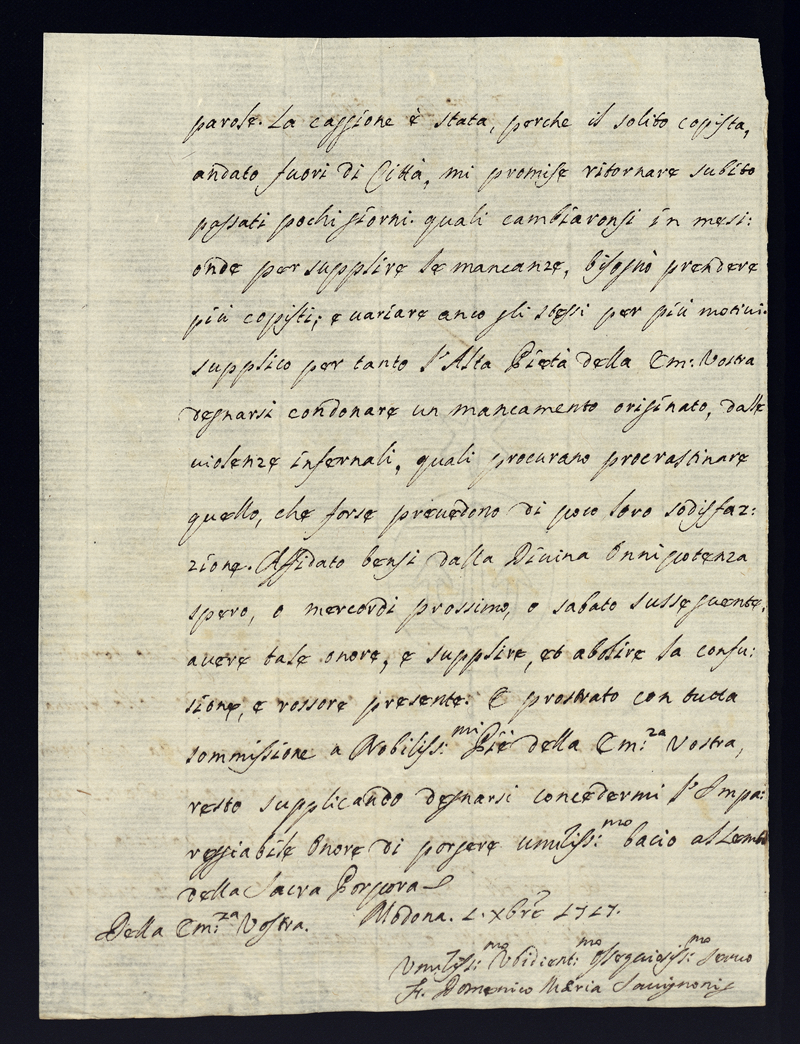 parole. La caggione è stata, perche il solito copista,
andato fuori di Città, mi promise ritornare subito
passati pochi giorni. quali cambiaronsi in mesi:
onde per supplire le mancanze, bisognò prendere
più copisti; e variare anco gli stessi per più motivi.
supplico per tanto l'Alta Pietà della Em: Vostra
degnarsi condonare un mancamento originato, dalle
violenze infernali, quali procurano procrastinare
quello, che forse prevedono di poco loro sodisfaz:
zione. Affidato bensi dalla Divina Onnipotenza
spero, o mercordi prossimo, o sabato susseguente,
avere tale onore, e supplire, et abolire la confu:
sione, e rossore presente. E prostrato con tutta
sommissione a Nobiliss:mi Piè della Em:za Vostra,
resto supplicando degnarsi concedermi l'Impa:
reggiabile Onore di porgere umiliss:mo bacio al Lembo
della Sacra Porpora
Della Em:za Vostra. Modona. Xbre
Umiliss:mo Ubidient:mo Ossequiosiss:mo Servo
Fr. Domenico Maria Savignoni